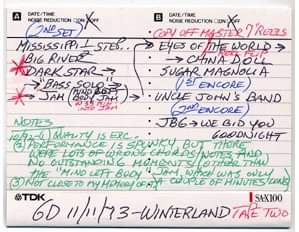 A DATE/TIME
NOISE REDUCTION ON OFF
B DATE/TIME
NOISE REDUCTION ON OFF
(2ND SET)
MISSISSIPPI ½ STEP
BIG RIVER
DARK STAR →
→ "BASS SOLO" →
→ JAM (MIND LEFT BODY JAM) →
COPY OFF MASTER 7" REELS
→ EYES OF THE WORLD →
REEL FLIP
→ CHINA DOLL
SUGAR MAGNOLIA
(1ST ENCORE)
UNCLE JOHN'S BAND
(2ND ENCORE)
JBG → WE BID YOU
GOODNIGHT
NOTES
QUALITY IS EXC.
(2) PERFORMANCE IS SPUNKY, BUT THERE
WERE LOTS OF WRONG CHORDS/NOTES, AND
NO OUTSTANDING MOMENTS (OTHER THAN
THE "MIND LEFT BODY" JAM, WHICH WAS ONLY
A COUPLE OF MINUTES LONG)
(3) NOT CLOSE TO MY MEMORY OF IT
TDK
SAX100
GD 11/11/73 - WINTERLAND
TAPE TWO